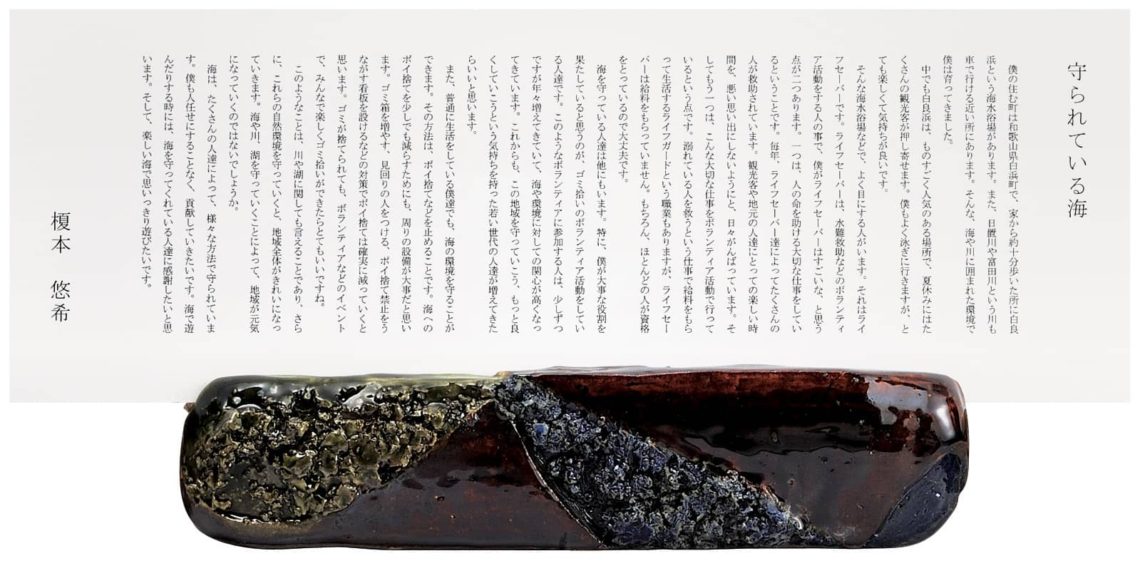 守られている海
僕の住む町は和歌山県白浜町で、家から約十分歩いた所に白良
浜という海水浴場があります。また、日置川や富田川という川も
車で行ける近い所にあります。そんな、海や川に囲まれた環境で
僕は育ってきました。
中でも白良浜は、ものすごく人気のある場所で、夏休みにはた
くさんの観光客が押し寄せます。僕もよく泳ぎに行きますが、と
ても楽しくて気持ちが良いです。
そんな海水浴場などで、よく目にする人がいます。それはライ
フセーバーです。ライフセーバーは、水難救助などのボランティ
ア活動をする人の事で、僕がライフセーバーはすごいな、と思う
点が二つあります。一つは、人の命を助ける大切な仕事をしてい
るということです。毎年、ライフセーバー達によってたくさんの
人が救助されています。観光客や地元の人達にとっての楽しい時
間を、悪い思い出にしないようにと、日々がんばっています。そ
してもう一つは、こんな大切な仕事をボランティア活動で行って
いるという点です。溺れている人を救うという仕事で給料をもら
って生活するライフガードという職業もありますが、ライフセー
バーは給料をもらっていません。もちろん、ほとんどの人が資格
をとっているので大丈夫です。
海を守っている人達は他にもいます。特に、僕が大事な役割を
果たしていると思うのが、ゴミ拾いのボランティア活動をしてい
る人達です。このようなボランティアに参加する人は、少しずつ
ですが年々増えてきていて、海や環境に対しての関心が高くなっ
てきています。これからも、この地域を守っていこう、もっと良
くしていこうという気持ちを持った若い世代の人達が増えてきた
らいいと思います。
また、普通に生活をしている僕達でも、海の環境を守ることが
できます。その方法は、ポイ捨てなどを止めることです。海への
ポイ捨てを少しでも減らすためにも、周りの設備が大事だと思い
ます。ゴミ箱を増やす、見回りの人をつける、ポイ捨て禁止をう
ながす看板を設けるなどの対策でポイ捨ては確実に減っていくと
思います。ゴミが捨てられても、ボランティアなどのイベント
で、みんなで楽しくゴミ拾いができたらとてもいいですね。
このようなことは、川や湖に関しても言えることであり、さら
に、これらの自然環境を守っていくと、地域全体がきれいになっ
ていきます。海や川、湖を守っていくことによって、地域が元気
になっていくのではないでしょうか。
海は、たくさんの人達によって、様々な方法で守られていま
す。僕も人任せにすることなく、貢献していきたいです。海で遊
んだりする時には、海を守ってくれている人達に感謝したいと思
います。そして、楽しい海で思いっきり遊びたいです。
榎本 悠希